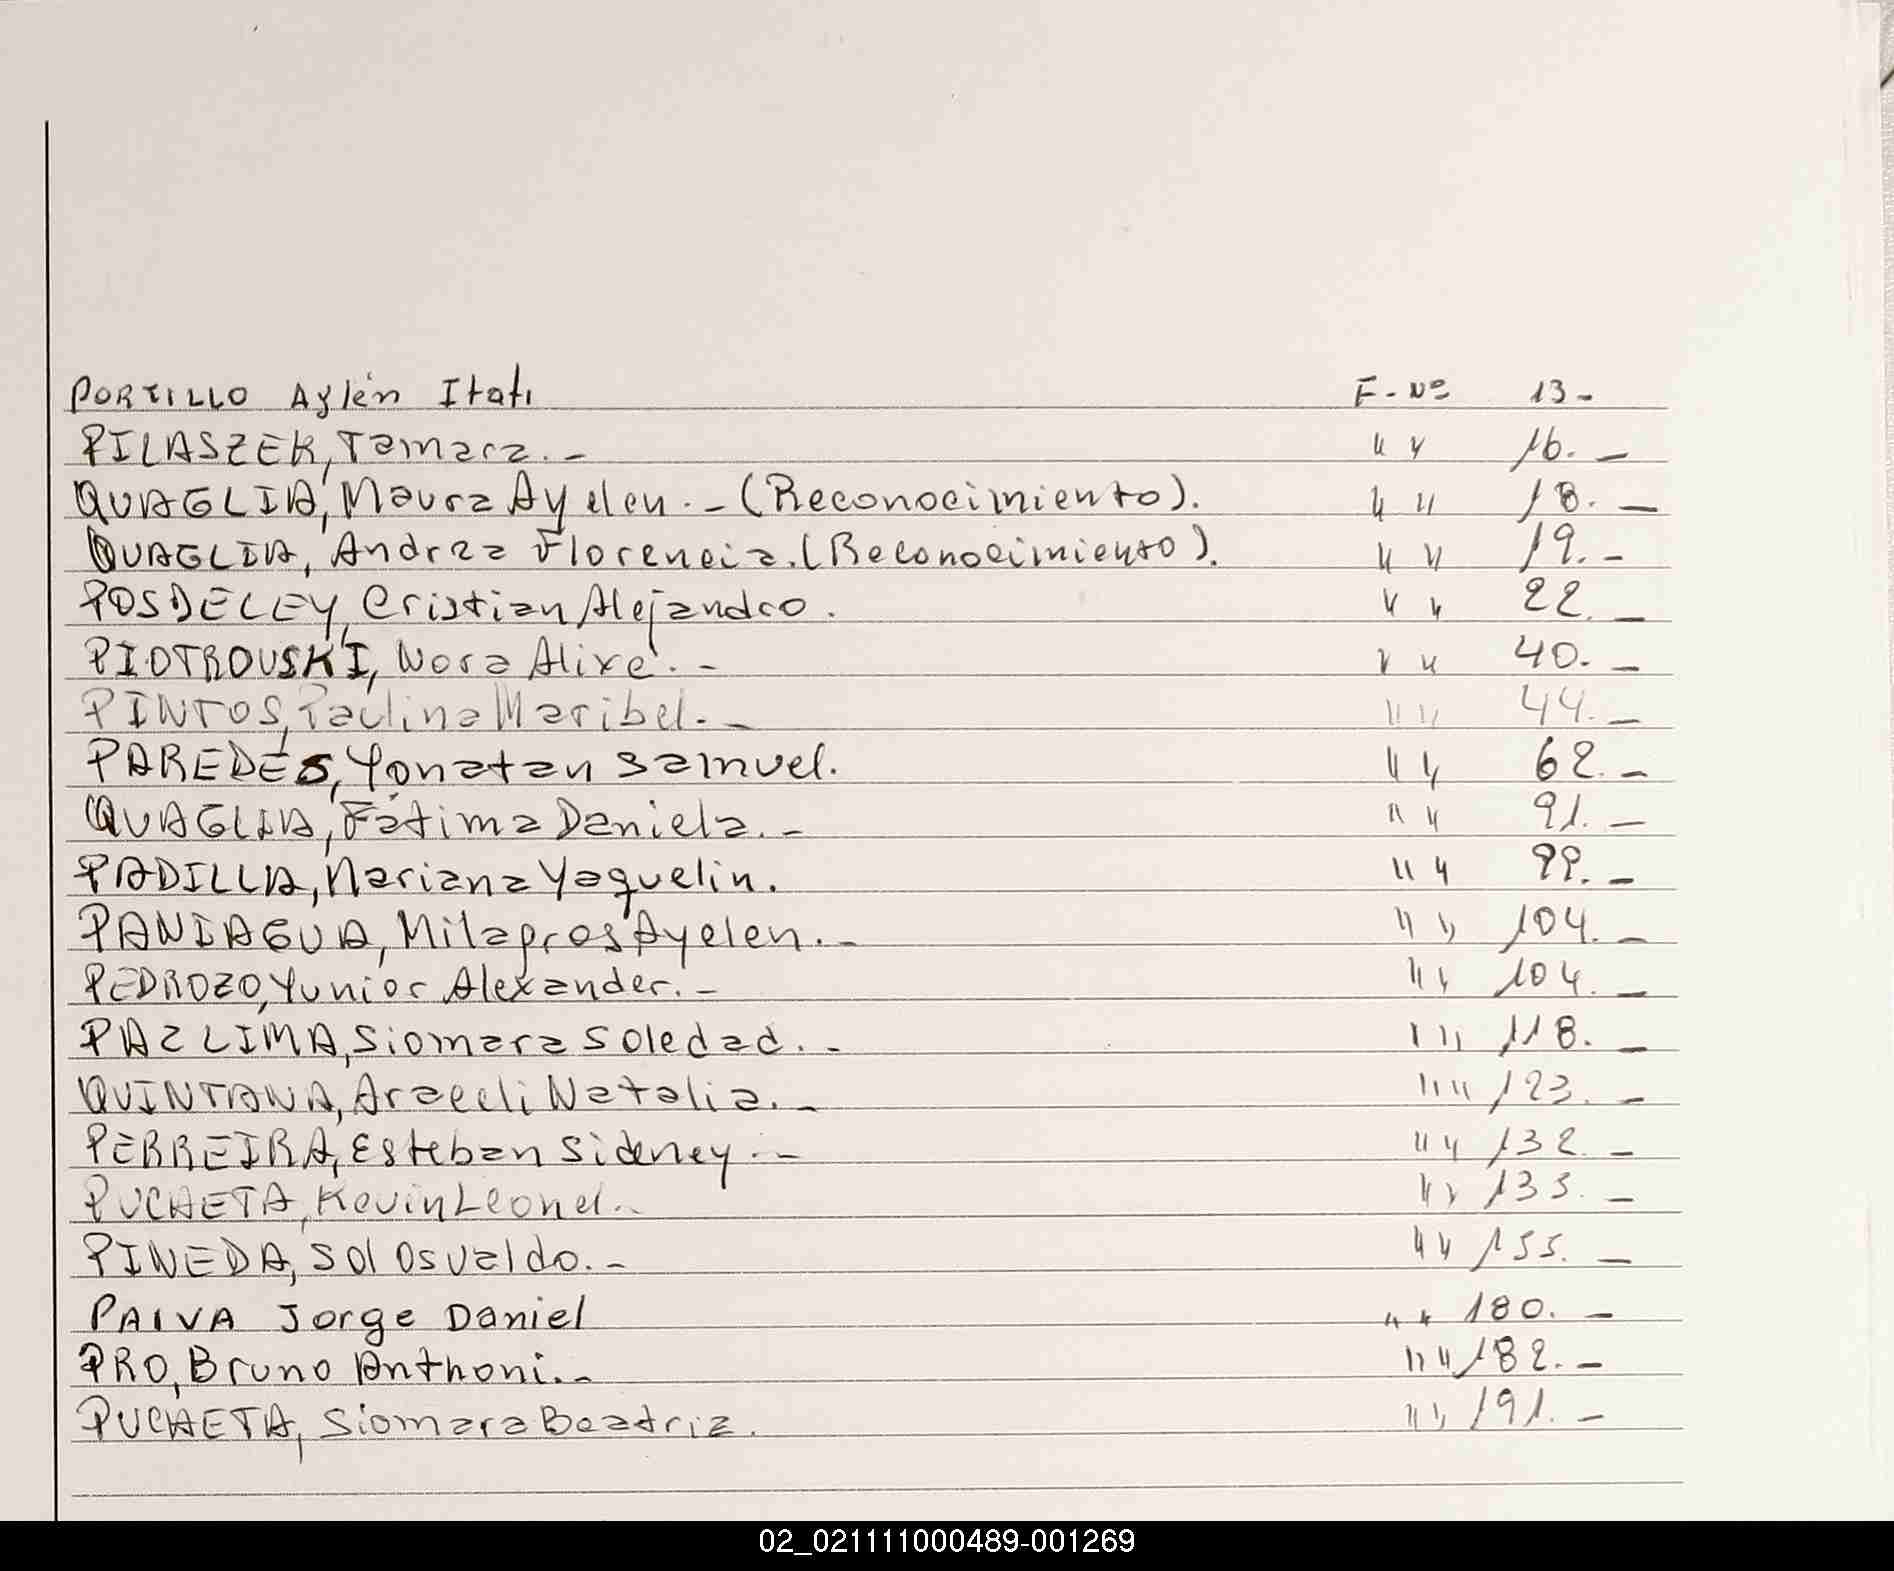 PORTILLO Aylén Itatí F-Nº 13-
PILASZEK, Tamara.- " " 16.-
QUAGLIA, Maura Ayelen.-(Reconocimiento). " " 18.-
QUAGLIA, Andrea Florencia.(Reconocimiento). " " 19.-
POSDELEY, Cristian Alejandro. " " 22.-
PIOTROUSKI, Nora Alixe.- " " 40.-
PINTOS, Paulina Maribel.- " " 44.-
PAREDES, Yonatan Samuel. " " 62.-
QUAGLIA, Fátima Daniela.- " " 91.-
PADILLA, Mariana Yaquelin. " " 99.-
PANIAGUA, Milagros Ayelen.- " " 104.-
PEDROZO, Yunior Alexander.- " " 104.-
PAZ LIMA, Siomara Soledad.- " " 118.-
QUINTANA, Araceli Natalia.- " " 123.-
PERREIRA, Esteban Sideney.- " " 132.-
PUCHETA, Kevin Leonel.- " " 133.-
PINEDA, Sol Osvaldo.- " " 155.-
PAIVA Jorge Daniel " " 180.-
PRO, Bruno Anthoni.- " " 182.-
PUCHETA, Siomara Beatriz. " " 191.-
02_021111000489-001269